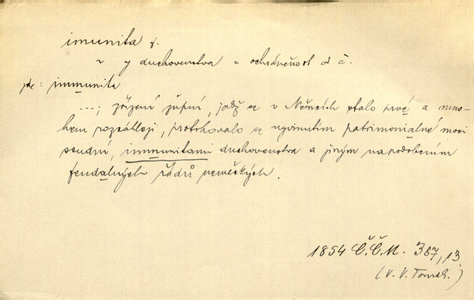 imunita f.
v. j duchovenstva = ochráněnost od č.
jde: immunita
...; zřízení župní, jakž se v Němcích stalo prvé a mno-
hem pozděj, protrhovalo se vyvinutím patrimonialné moci
soudní, immunitami duchovenstva a jiným napodobením
feudalných řádů německých.
1854 Č.Č.M. 387,13.
(V. V. Tomek.)